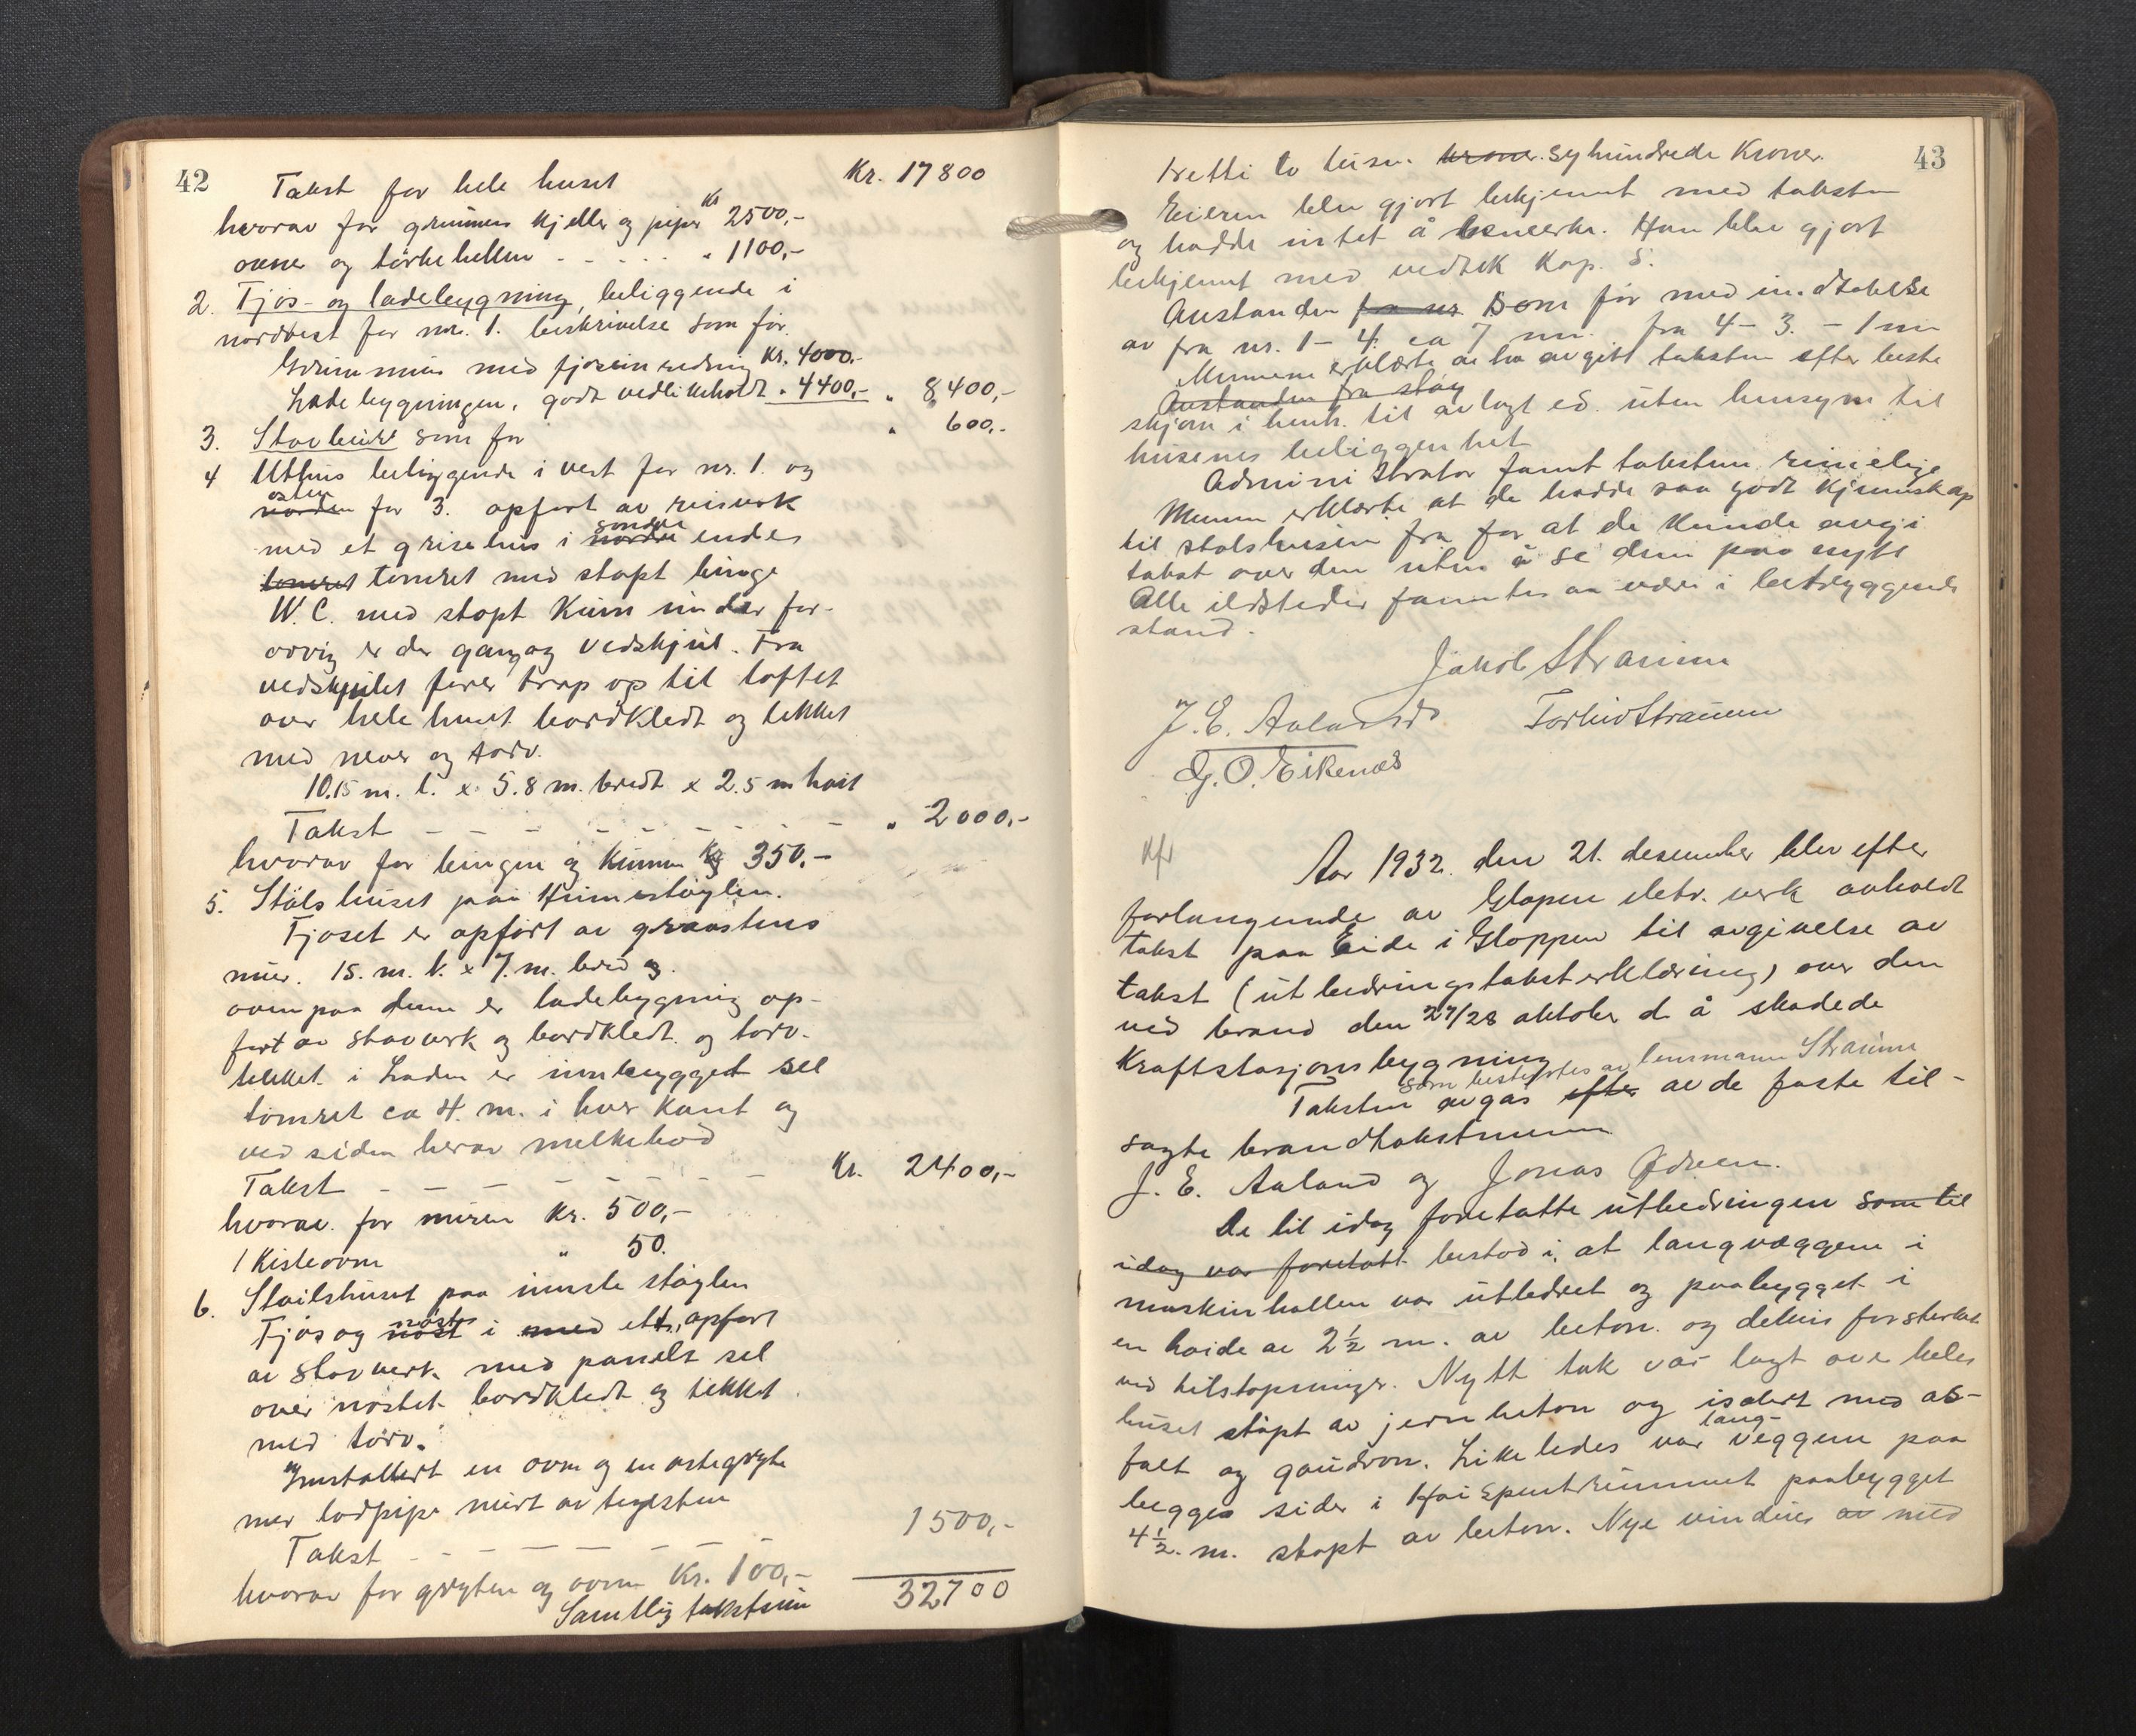 42
Takst for hele huset Kr. 17800
hvorav for grunmur kjeller og piper Kr 2500,-
ovner og tørkehellen - - - - - " 1100,-
2. Fjøs- og ladebygning, beliggende i
nordvest for nr. 1. beskrivelse som før.
Grunnmur med fjøsinredning Kr. 4000.-
Ladebygningen, godt vedlikeholdt " 4400,- " 8400,-
3. Stavbur som før " 600,-
4 Uthus beliggende i vest for nr. 1. og
østen
norden for 3. opført av reisverk
søndre
med et grisehus i nordre ende
tømret tømret med støpt binge
W.C. med støpt Kum under for-
øvrig er der gang og vedskjul. Fra
vedskjulet fører trap op til loftet
over hele huset bordkledt og tekket
med never og torv.
10.15 m. l. x 5.8 m. bredt x 2.5 m høit
Takst - - - - - - - - " 2000,-
hvorav for bingen og Kummen Kr 350,-
5. Stølshuset paa Himestøylen.
Fjøset er opført av graastens
mur. 15. m. l. x 7. m. bred og
ovenpaa denne er ladebygning op-
ført av stavverk og bordkledt. og torv-
tekket. i Laden er innbygget sel
tømret ca 4. m. i hver kant og
ved siden herav melkebod
Takst - - - - - - - - Kr. 2400,-
hvorav for muren Kr. 500,-
1 Kisteovn " 50.
6. Støilshuset paa inmste støylen
nøster
Fjøs og nøst i med ett, opført
av stavverk. med panelt sel
over nøstet. bordkledt og tekket
med torv.
Innstallert en ovn og en ostegryte
mer lodpipe murt av teglsten
Takst - - - - - - 1500,-
hvorav for gryten og ovnen Kr. 100,-
32700
Samtlig takstsum
43
tretti to tusen. kroner. syhundrede Kroner.
Eieren blev gjort bekjennt med taksten
og hadde intet å bemerke. Han blev gjort
bekjennt med vedtek Kap. 5.
Avstanden fra nr Som før med undtakelse
av fra nr. 1 - 4. ca 7 m. fra 4 - 3. - 1 m
Mennene erklærte at ha avgitt taksten efter beste
Avstanden fra støy
skjøn i henh. til avlagt ed. uten hensyn til
husenes beliggenhet
Administrator fannt taksten rimelige
Mennene erklærte at de hadde saa godt kjennskap
til stølshusene fra før at de kunde avgi
takst over dem uten å se dem paa nytt
Alle ildsteder fanntes aa være i betryggende
stand.
Jakob Straume
J. E. Aaland Torleiv Straume
G. O. Eikenæs
Aar 1932. den 21. desember blev efter
forlangende av Gloppen elektr. verk avholdt
takst paa Eide i Gloppen til avgivelse av
takst (utbedringstaksterklæring) over den
ved brand den 27/28 oktober d. å skadede
Kraftstasjonsbygning
som bestyrtes av lensmann Straume
Taksten avgas efter av de faste til-
sagte brandtakstmenn
J. E. Aaland og Jonas Ødven.
De til idag foretatte utbedringen som til
idag var foretatt bestod i, at langvæggene i
maskinhallen var utbedret og paabygget i
en høide av 2½ m. av beton. og delvis forsterket
ved tilstøpninger. Nytt tak var lagt over hele
huset støpt av jernbeton og isolert med as-
lang-
falt og goudron. Likeledes var veggene paa
begge sider i Høispentrummet paabygget
4½. m. støpt av beton. Nye vinduer av med